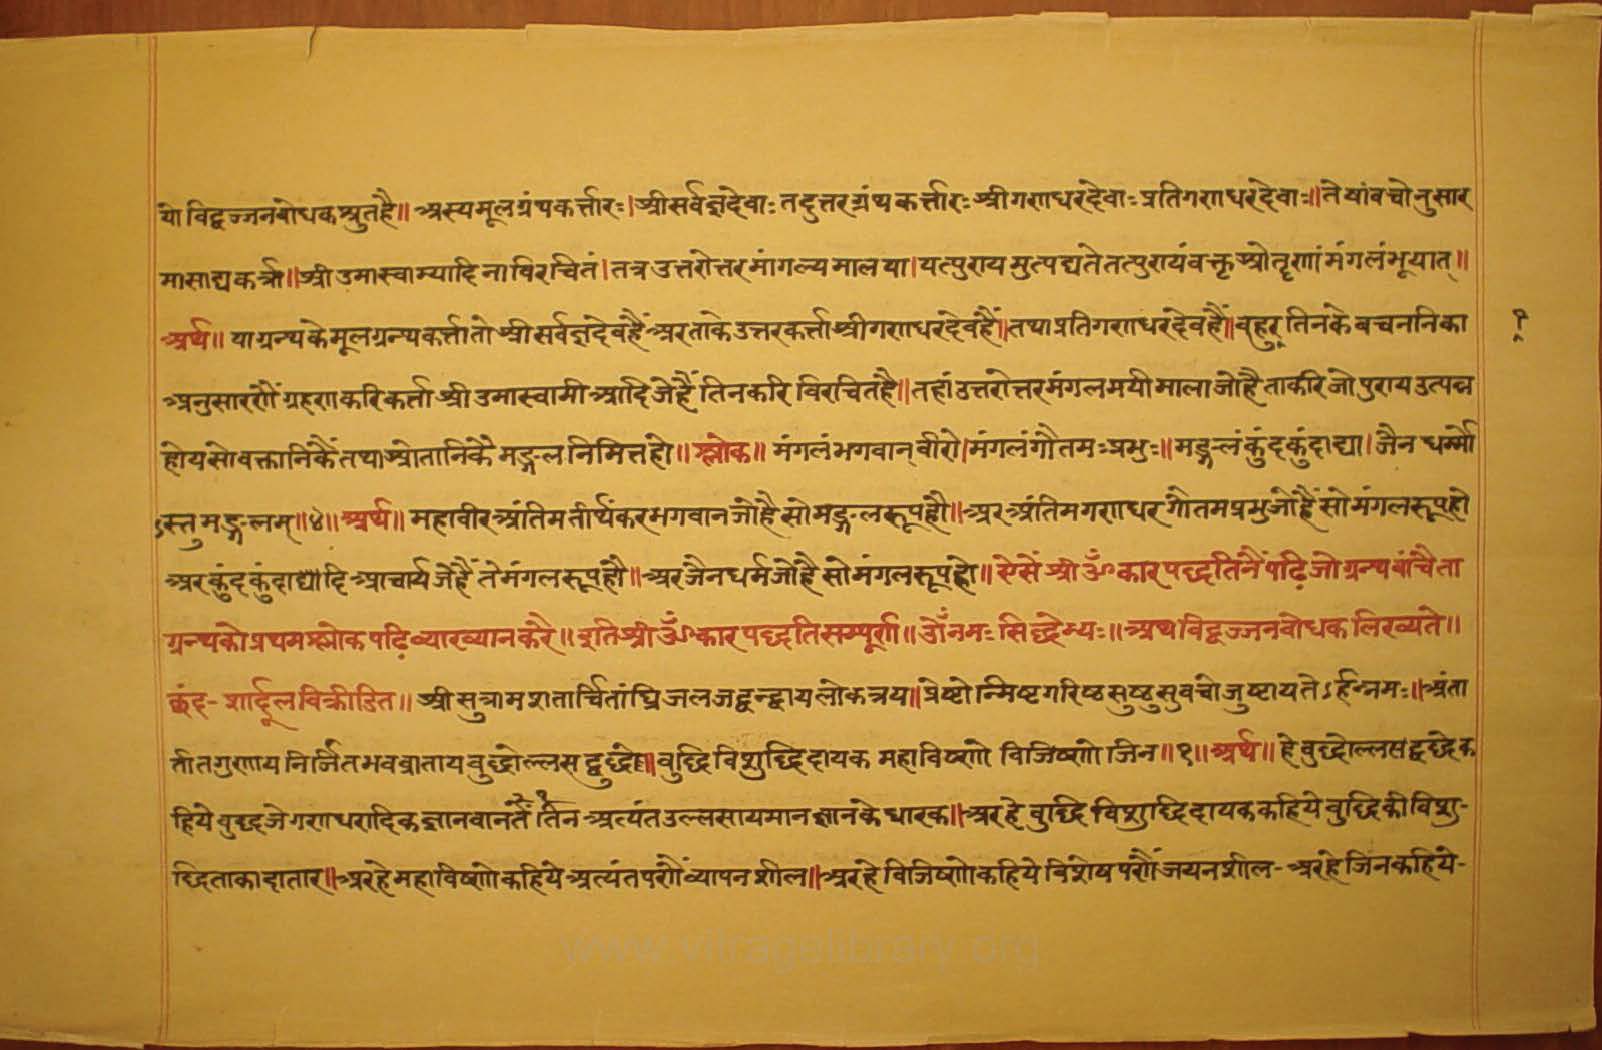 यो विद्वज्जनबोधकश्रुतहै॥ अस्यमूलग्रंथकर्त्तारः। श्रीसर्वज्ञदेवाः तदुत्तरग्रंथकर्त्तारः श्रीगणधरदेवाः प्रतिगणधरदेवाः॥ तेषांवचोनुसार
मासाद्यकर्त्त्रा॥ श्रीउमास्वाम्यादिनाविरचितं। तत्र उत्तरोत्तरमांगल्यमालया। यत्पुण्यमुत्पद्यतेतत्पुण्यंवक्तृश्रोतॄणांमंगलंभूयात्॥
अर्थ॥ याग्रन्थकेमूलग्रन्थकर्त्तातोश्रीसर्वज्ञदेवहैं अरताकेउत्तरकर्त्ताश्रीगणधरदेवहैं॥ तथाप्रतिगणधरदेवहैं॥ वहुर् तिनकेबचननिका
अनुसारणौंग्रहणकरिकर्त्ता श्रीउमास्वामीआदिजेहैं तिनकरि विरचितहै॥ तहांउत्तरोत्तरमंगलमयीमालाजोहै ताकरिजोपुण्यउत्पन्न
होयसोवक्तानिकैंतथाश्रोतानिकैमङ्गलनिमित्तहो॥ श्लोक॥ मंगलंभगवान्वीरो। मंगलंगौतमःप्रभुः॥ मङ्गलंकुंदकुंदाद्या। जैनधर्म्मो
ऽस्तुमङ्गलम्॥४॥ अर्थ॥ महावीरअंतिमतीर्थंकरभगवानजोहैसोमङ्गलरूपहौ॥ अरअंतिमगणधरगौतमप्रभुजोहैंसोमंगलरूपहो
अरकुंदकुंदाद्यादिआचार्यजेहैं तेमंगलरूपहौ॥ अरजैनधर्मजोहैसोमंगलरूपहो॥ ऐसेंश्रीॐकारपद्धतिनैंपढ़िजोग्रन्थबांचैता
ग्रन्थकोप्रथमश्लोकपढ़िव्याख्यानकरे॥ इतिश्रीॐकारपद्धतिसम्पूर्ण॥ ॐनमःसिद्धेभ्यः॥ अथविद्वज्जनबोधकलिख्यते॥
छंद-शार्दूलविक्रीडित॥ श्रीसुत्रामशतार्चितांघ्रिजलजद्वन्द्वायलोकत्रय॥ प्रेष्टोन्मिष्टगरिष्ठसुष्ठुसुवचोजुष्टायतेऽर्हन्नमः॥ अंता
तीतगुणायनिर्जितभवव्रातायवुद्धोल्लसद्वुद्धे॥ वुद्धिविशुद्धिदायक महाविष्णो विजिष्णो जिन॥१॥ अर्थ॥ हेवुद्धोल्लसद्वुद्धेक
हियेवुद्धजेगणधरादिकज्ञानवानतैं तिन अत्यंतउल्लसायमानज्ञानकेधारक॥ अरहे वुद्धिविशुद्धिदायककहियेवुद्धिकीविशु-
द्धिताकादातार॥ अरहेमहाविष्णोकहियेअत्यंतपणैंव्यापनशील॥ अरहेविजिष्णोकहियेविशेषपणैंजयनशील-अरहेजिनकहिये-
www.vitragelibrary.org